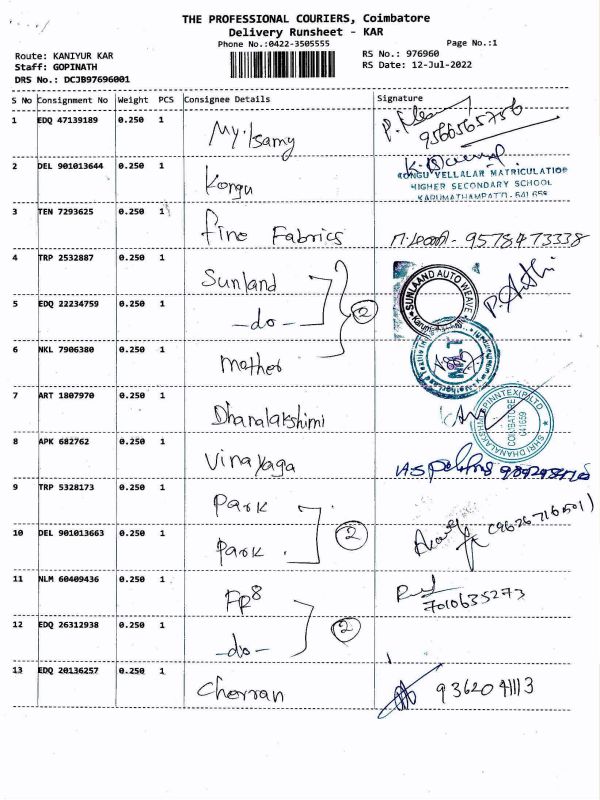 THE PROFESSIONAL COURIERS, Coimbatore
Delivery Runsheet - KAR
Phone No.:0422-3505555
Page No.:1
Route: KANIYUR KAR
Staff: GOPINATH
DRS No.: DCJB97696001
RS No.: 976960
RS Date: 12-Jul-2022
S No Consignment No Weight PCS Consignee Details Signature
1 EDQ 47139189 0.250 1 My.Isamy 9566565756
2 DEL 901013644 0.250 1 Kongu
KONGU VELLALAR MATRICULATION
HIGHER SECONDARY SCHOOL
KARUMATHAMPATTI - 641 659
3 TEN 7293625 0.250 1 fine Fabrics 9578473338
4 TRP 2532887 0.250 1 Sunland
SUNLAAND AUTO WEAVE
5 EDQ 22234759 0.250 1 -do- 2
6 NKL 7906380 0.250 1 mather
7 ART 1807970 0.250 1 Dhanalakshimi
SHRI DHANALAKSHMI SPINNTEX (P) LTD
COIMBATORE
641659
8 APK 682762 0.250 1 Vinayaga
9 TRP 5328173 0.250 1 Park
10 DEL 901013663 0.250 1 Park 2 (9626716501)
11 NLM 60409436 0.250 1 FP8 7010635273
12 EDQ 26312938 0.250 1 -do- 2
13 EDQ 20136257 0.250 1 Cherran 9362041113